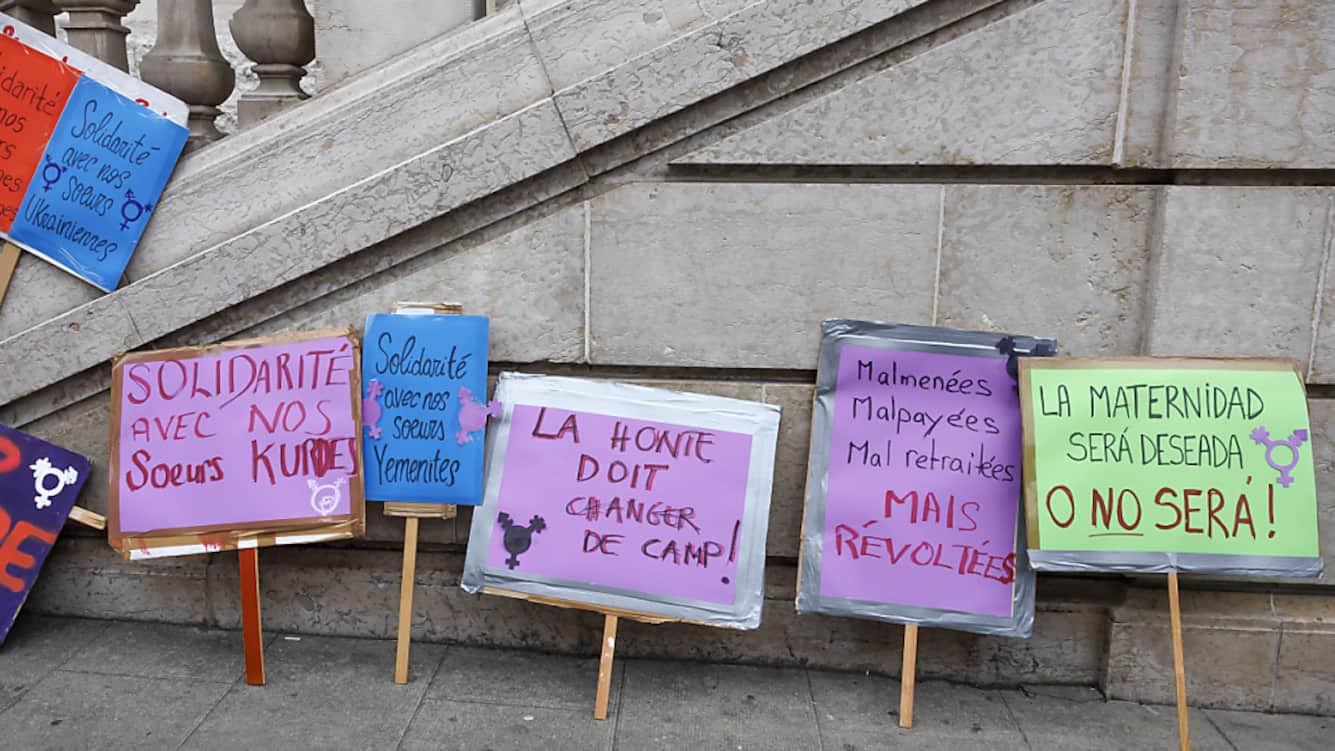 lidarité
nos
Solidarité
avec nos
soeurs
Ukrainiennes
SOLIDARITÉ
AVEC NOS
Soeurs KURDES
Solidarité
avec nos
soeurs
Yemenites
LA HONTE
DOIT
CHANGER
DE CAMP!
Malmenées
Malpayées
Mal retraitées
MAIS
RÉVOLTÉES
LA MATERNIDAD
SERÁ DESEADA
O NO SERÁ!